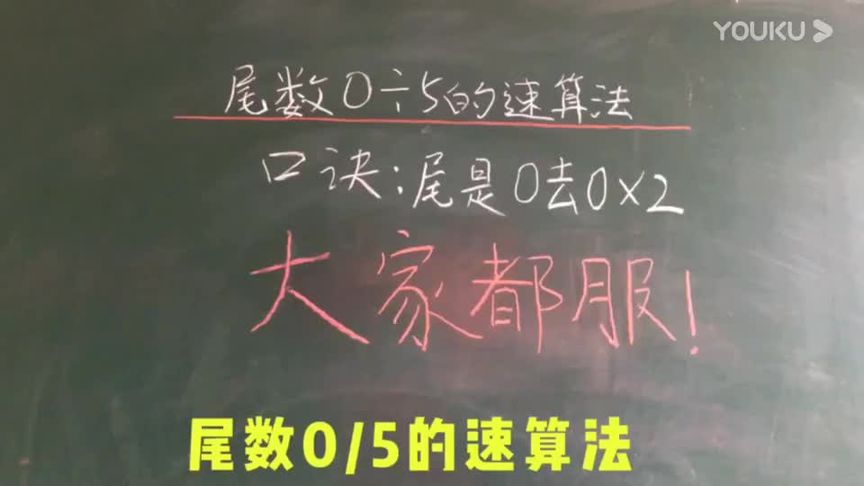 YOUKU
尾数0÷5的速算法
口诀:尾是0去0×2
大家都服!
尾数0/5的速算法